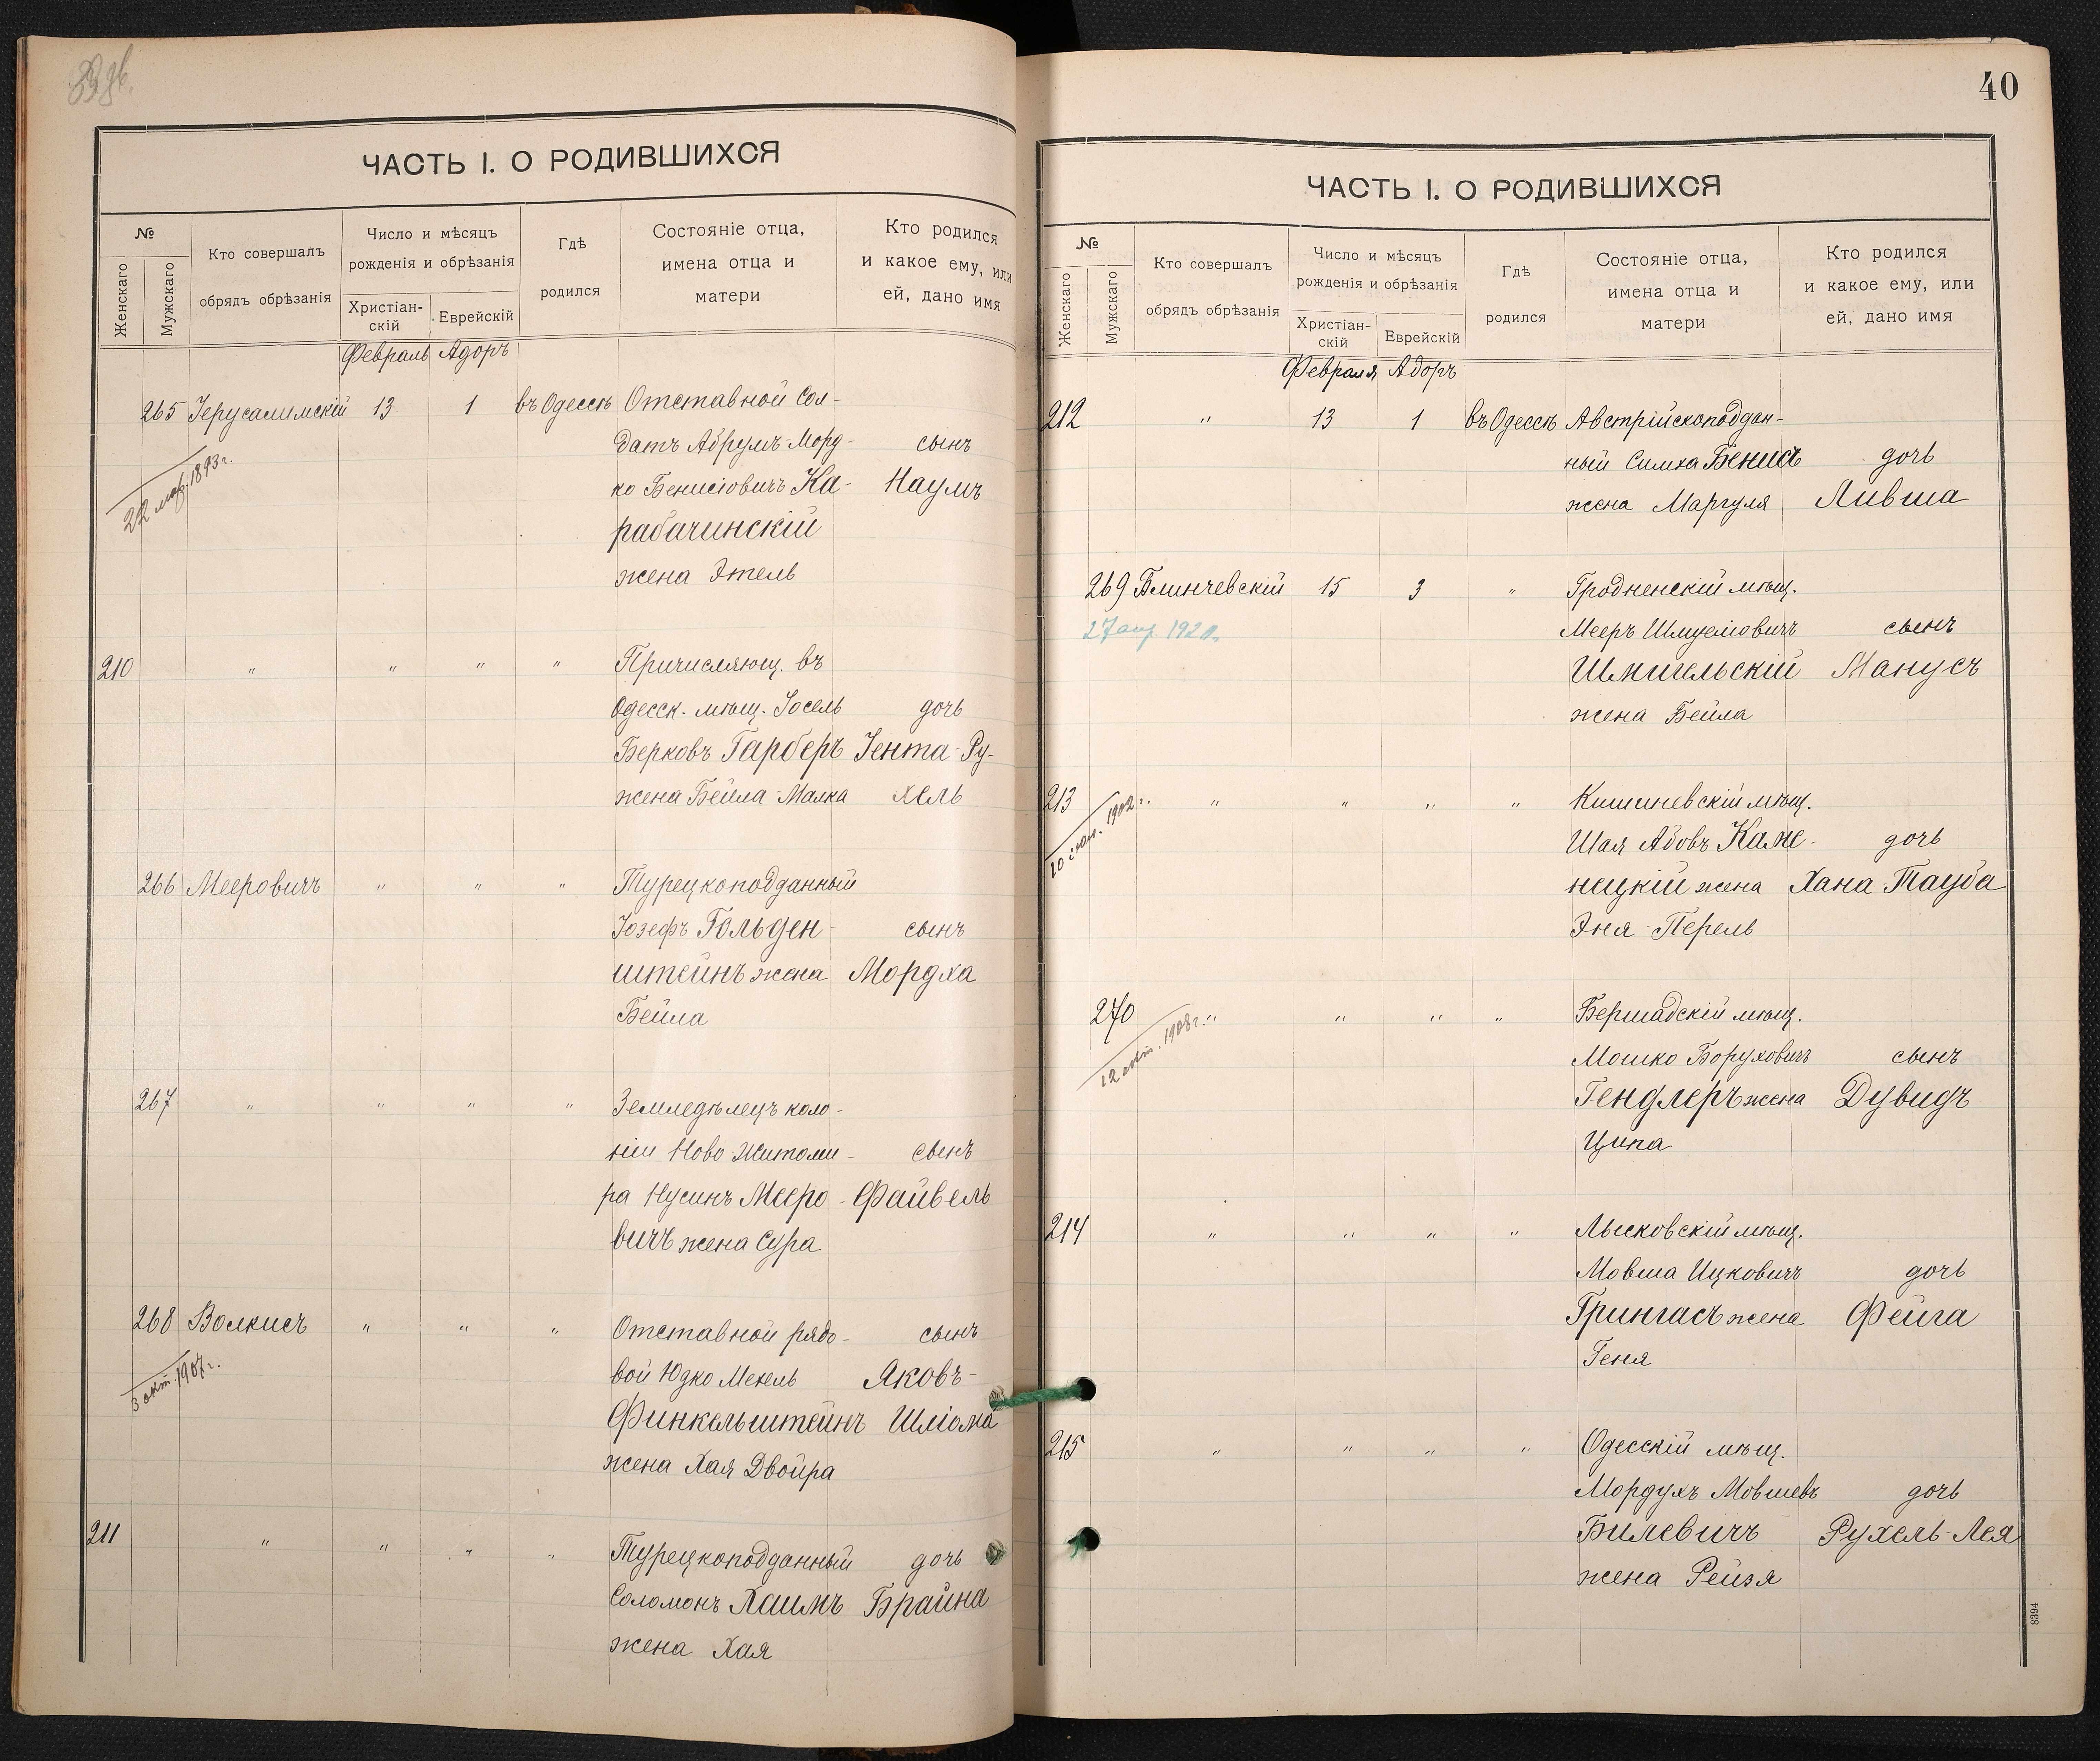 ЧАСТЬ I. О РОДИВШИХСЯ
№
Женскаго
Мужскаго
Кто совершалъ
обрядъ обрѣзанія
Число и мѣсяцъ
рожденія и обрѣзанія
Христіан-
скій
Еврейскій
Гдѣ
родился
Состояніе отца,
имена отца и
матери
Кто родился
и какое ему, или
ей, дано имя
Февраль Адоръ
265 Іерусалимскій 13 1 въ Одессѣ Отставной Сол-
датъ Абрумъ-Морд- сынъ
ко Бенисіовичъ Ка- Наумъ
рабачинскій
жена Этель
22 мар. 1893 г.
210 " " " " Причисляющ. въ
Одесск. мѣщ. Іосель дочь
Берковъ Гарберъ Іента-Ру-
жена Бейла-Малка хель
266 Мееровичъ " " " Турецкоподданный
Іозефъ Гольден- сынъ
штейнъ жена Мордха
Бейла
267 " " " " Земледѣлецъ коло-
ніи Ново Житоми- сынъ
ра Нусинъ Мееро- Файвель
вичъ жена Сура
268 Волкисъ " " " Отставной рядо- сынъ
вой Юдко Мехель Яковъ-
Финкельштейнъ Шліома
жена Хая Двойра
3 окт. 1907 г.
211 " " " " Турецкоподданный дочь
Соломонъ Хаимъ Брайна
жена Хая
40
ЧАСТЬ I. О РОДИВШИХСЯ
№
Женскаго
Мужскаго
Кто совершалъ
обрядъ обрѣзанія
Число и мѣсяцъ
рожденія и обрѣзанія
Христіан-
скій
Еврейскій
Гдѣ
родился
Состояніе отца,
имена отца и
матери
Кто родился
и какое ему, или
ей, дано имя
Февраля Адоръ
212 " 13 1 въ Одессѣ Австрійскоподдан-
ный Симха Бенисъ дочь
жена Маргуля Ливша
269 Блинчевскій 15 3 " Гродненскій мѣщ.
27 апр. 1920.
Мееръ Шмуеліовичъ сынъ
Шмигельскій Манусъ
жена Бейла
213 " " " " Кишиневскій мѣщ.
Шая Абовъ Каме- дочь
нецкій жена Хана Тауба
Эня-Перель
1902 г.
270 " " " " Бершадскій мѣщ.
Мошко Боруховичъ сынъ
Гендлеръ жена Дувидъ
Ципа
12 окт. 1908 г.
214 " " " " Лысковскій мѣщ.
Мовша Ицковичъ дочь
Грингасъ жена Фейга
Геня
215 " " " " Одесскій мѣщ.
Мордухъ Мовшевъ дочь
Билевичъ Рухель-Лея
жена Рейзя
8394